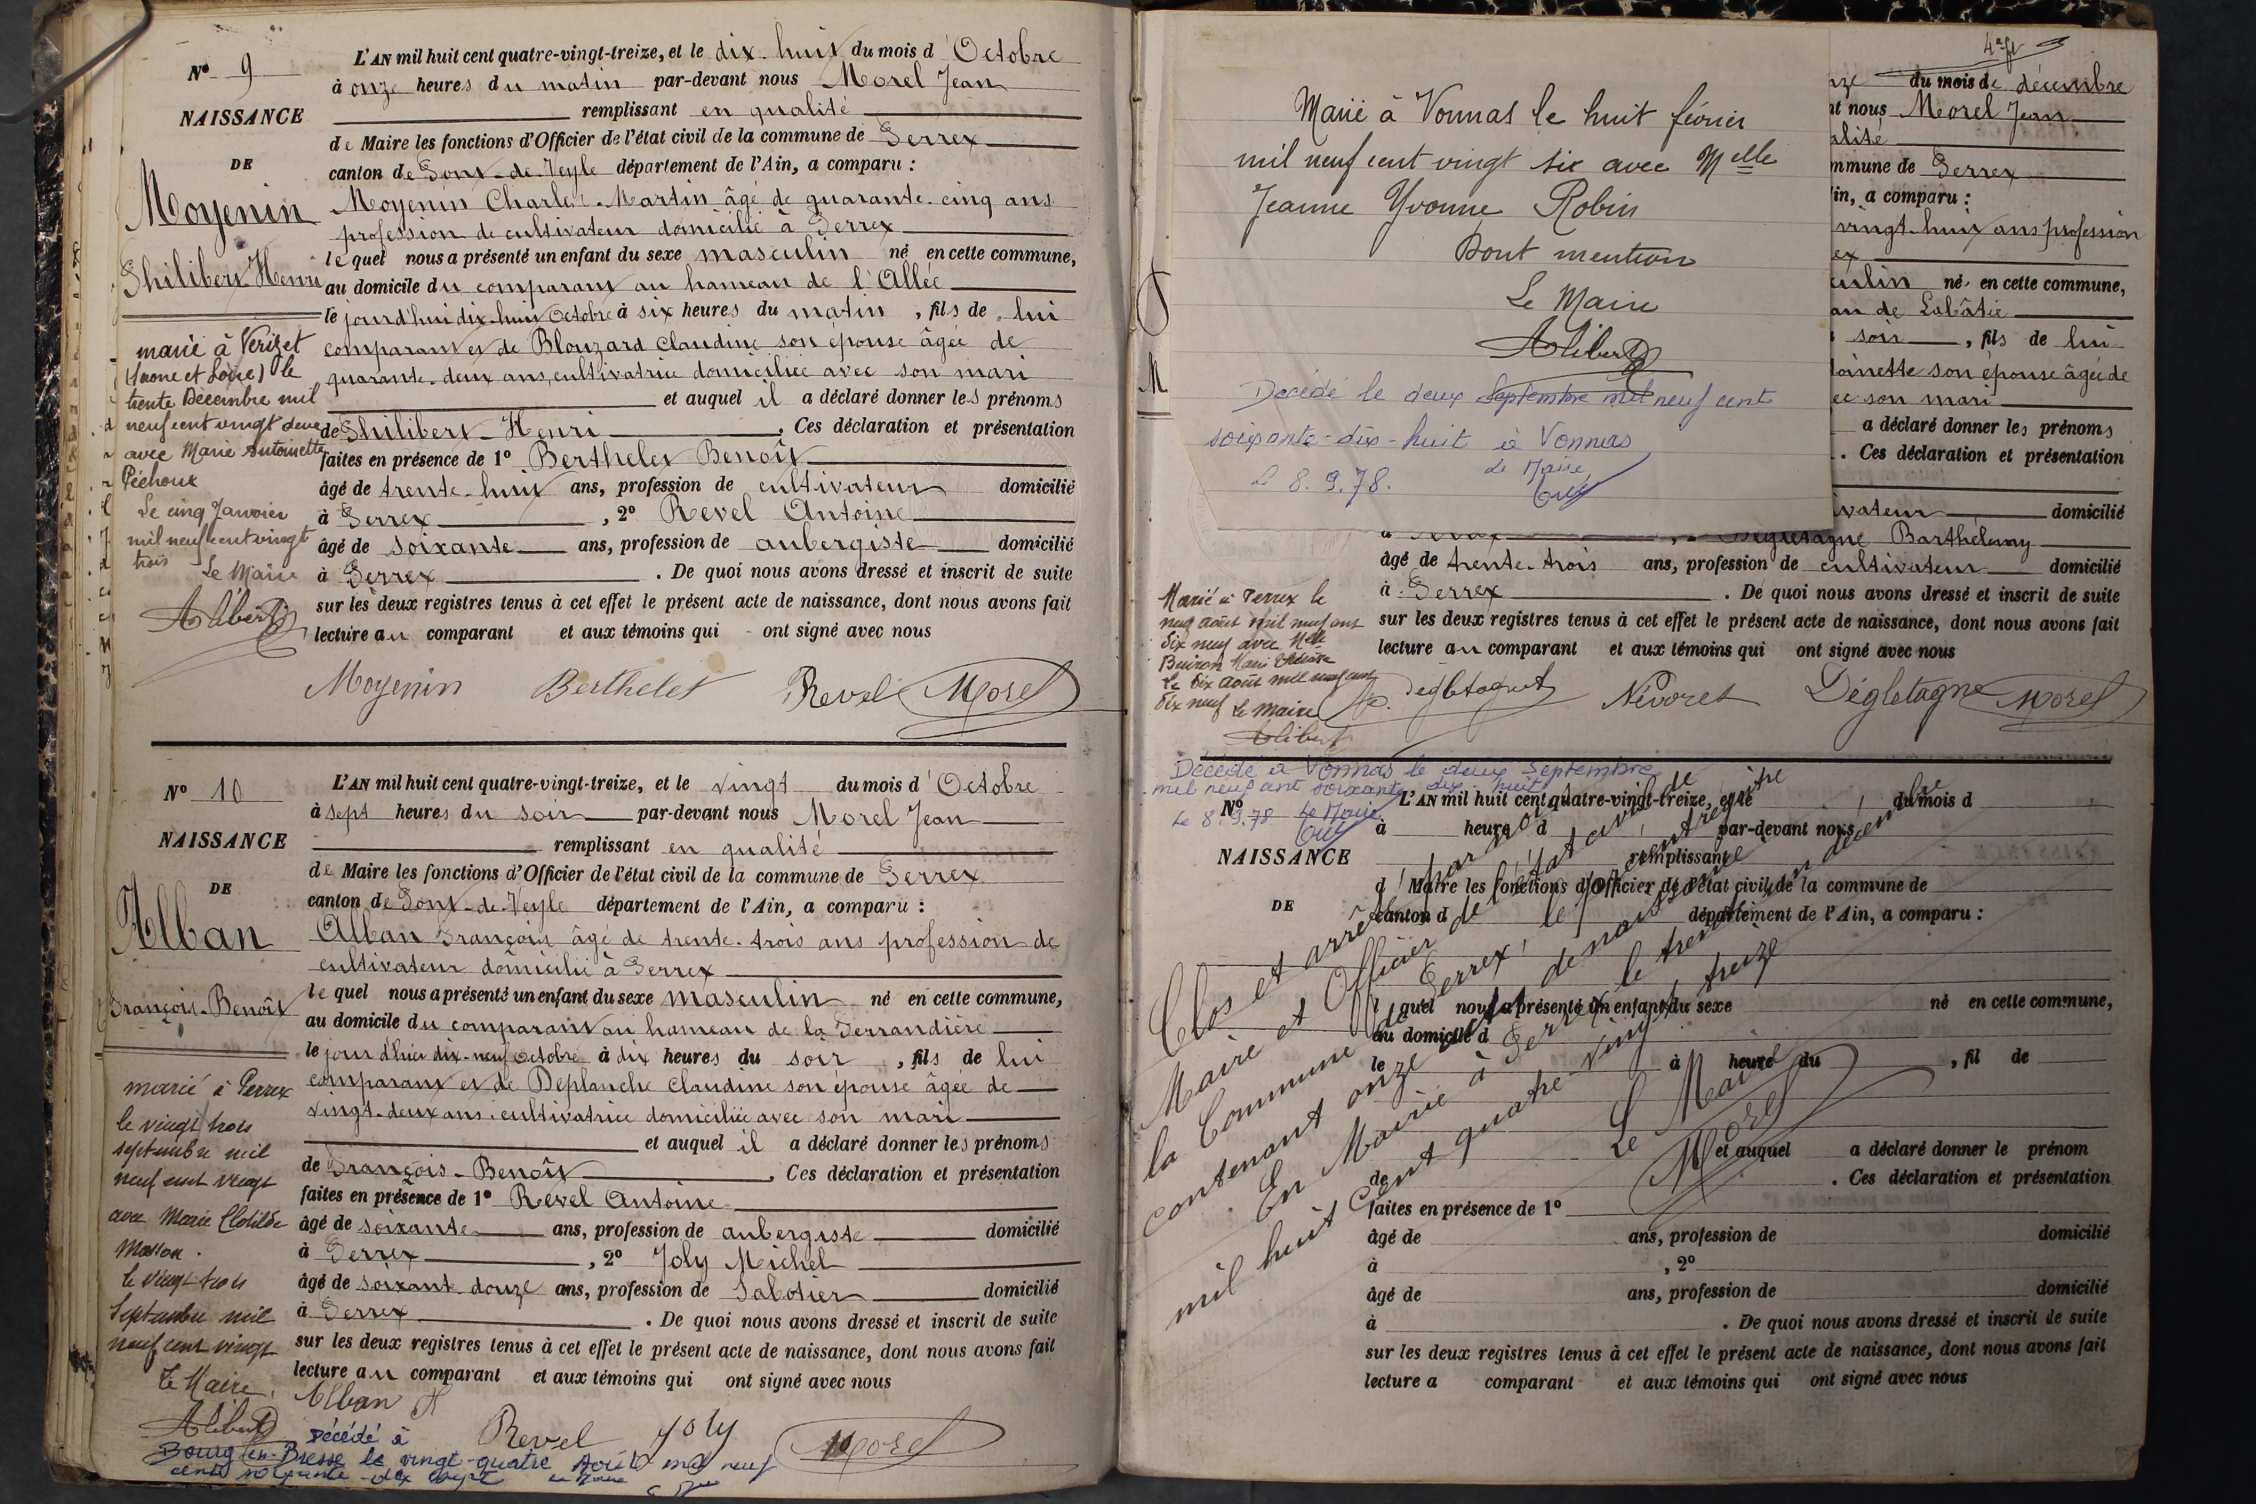 Nº 9
NAISSANCE
DE
Moyenin
Philibert Henri
L'AN mil huit cent quatre-vingt-treize, et le dix-huit du mois d'Octobre
à onze heures du matin par-devant nous Morel Jean
remplissant en qualité
de Maire les fonctions d'Officier de l'état civil de la commune de Perrex
canton de Pont-de-Veyle département de l'Ain, a comparu :
Moyenin Charles-Martin âgé de quarante-cinq ans
profession de cultivateur domicilié à Perrex
lequel nous a présenté un enfant du sexe masculin né en cette commune,
au domicile du comparant au hameau de l'Allée
le jourd'hui dix-huit Octobre à six heures du matin, fils de lui
comparant et de Blouzard Claudine son épouse âgée de
quarante-deux ans, cultivatrice domiciliée avec son mari
et auquel il a déclaré donner les prénoms
de Philibert-Henri. Ces déclaration et présentation
faites en présence de 1º Berthelet Benoît
âgé de trente-huit ans, profession de cultivateur domicilié
à Perrex, 2º Revel Antoine
âgé de soixante ans, profession de aubergiste domicilié
à Perrex. De quoi nous avons dressé et inscrit de suite
sur les deux registres tenus à cet effet le présent acte de naissance, dont nous avons fait
lecture au comparant et aux témoins qui ont signé avec nous
Moyenin Berthelet Revel Morel
marié à Verizet
(Saone et Loire) le
trente Décembre mil
neuf cent vingt deux
avec Marie Antoinette
Péchoux
Le cinq Janvier
mil neuf cent vingt
trois Le Maire
Alibert
Nº 10
NAISSANCE
DE
Alban
François-Benoît
L'AN mil huit cent quatre-vingt-treize, et le vingt du mois d'Octobre
à sept heures du soir par-devant nous Morel Jean
remplissant en qualité
de Maire les fonctions d'Officier de l'état civil de la commune de Perrex
canton de Pont-de-Veyle département de l'Ain, a comparu :
Alban François âgé de trente-trois ans profession de
cultivateur domicilié à Perrex
lequel nous a présenté un enfant du sexe masculin né en cette commune,
au domicile du comparant au hameau de la Ferrandière
le jour d'hier dix-neuf Octobre à dix heures du soir, fils de lui
comparant et de Deplanche Claudine son épouse âgée de
vingt-deux ans, cultivatrice domiciliée avec son mari
et auquel il a déclaré donner les prénoms
de François-Benoît. Ces déclaration et présentation
faites en présence de 1º Revel Antoine
âgé de soixante ans, profession de aubergiste domicilié
à Perrex, 2º Joly Michel
âgé de soixante-douze ans, profession de Sabotier domicilié
à Perrex. De quoi nous avons dressé et inscrit de suite
sur les deux registres tenus à cet effet le présent acte de naissance, dont nous avons fait
lecture au comparant et aux témoins qui ont signé avec nous
Alban Revel Joly Morel
marié à Perrex
le vingt trois
septembre mil
neuf cent vingt
avec Marie Clotilde
le vingt trois
Septembre mil
neuf cent vingt
Le Maire,
Alibert
Décédé à
Bourg-en-Bresse le vingt-quatre Août mil neuf
cent soixante-dix
Marié à Vonnas le huit février
mil neuf cent vingt six avec Melle
Jeanne Yvonne Robin
Dont mention
Le Maire
Alibert
Décédé le deux Septembre mil neuf cent
soixante-dix-huit à Vonnas
Le Maire
L 8.9.78.
du mois de décembre
nt nous Morel Jean
alité
mmune de Perrex
in, a comparu :
vingt-huit ans profession
ex
culin né en cette commune,
au de Labâtie
soir, fils de lui
toinette son épouse âgée de
ec son mari
a déclaré donner les prénoms
. Ces déclaration et présentation
ivateur domicilié
Degletagne Barthélemy
âgé de trente-trois ans, profession de cultivateur domicilié
à Perrex. De quoi nous avons dressé et inscrit de suite
sur les deux registres tenus à cet effet le présent acte de naissance, dont nous avons fait
lecture au comparant et aux témoins qui ont signé avec nous
Degletagne Névoret Dégletagne Morel
Marié à Perrex le
neuf août mil neuf cent
dix neuf avec Melle
Buiron Marie
Le dix août mil neuf cent
dix neuf Le Maire
Alibert
Décédé à Vonnas le deux Septembre
mil neuf cent soixante dix-huit
Le 8.9.78 Le Maire
Nº
NAISSANCE
DE
L'AN mil huit cent quatre-vingt-treize, et le du mois d
à heure d par-devant nous
remplissant
d Maire les fonctions d'Officier de l'état civil de la commune de
canton d département de l'Ain, a comparu :
quel nous a présenté un enfant du sexe né en cette commune,
au domicile d
le à heure du, fil de
et auquel a déclaré donner le prénom
de . Ces déclaration et présentation
faites en présence de 1º
âgé de ans, profession de domicilié
à , 2º
âgé de ans, profession de domicilié
à . De quoi nous avons dressé et inscrit de suite
sur les deux registres tenus à cet effet le présent acte de naissance, dont nous avons fait
lecture a comparant et aux témoins qui ont signé avec nous
Clos et arrêté par nous
Maire et Officier de l'état civil de
la Commune de Perrex, le présent registre
contenant onze actes de naissance
En Mairie à Perrex le trente un décembre
mil huit cent quatre-vingt treize
Le Maire
Morel